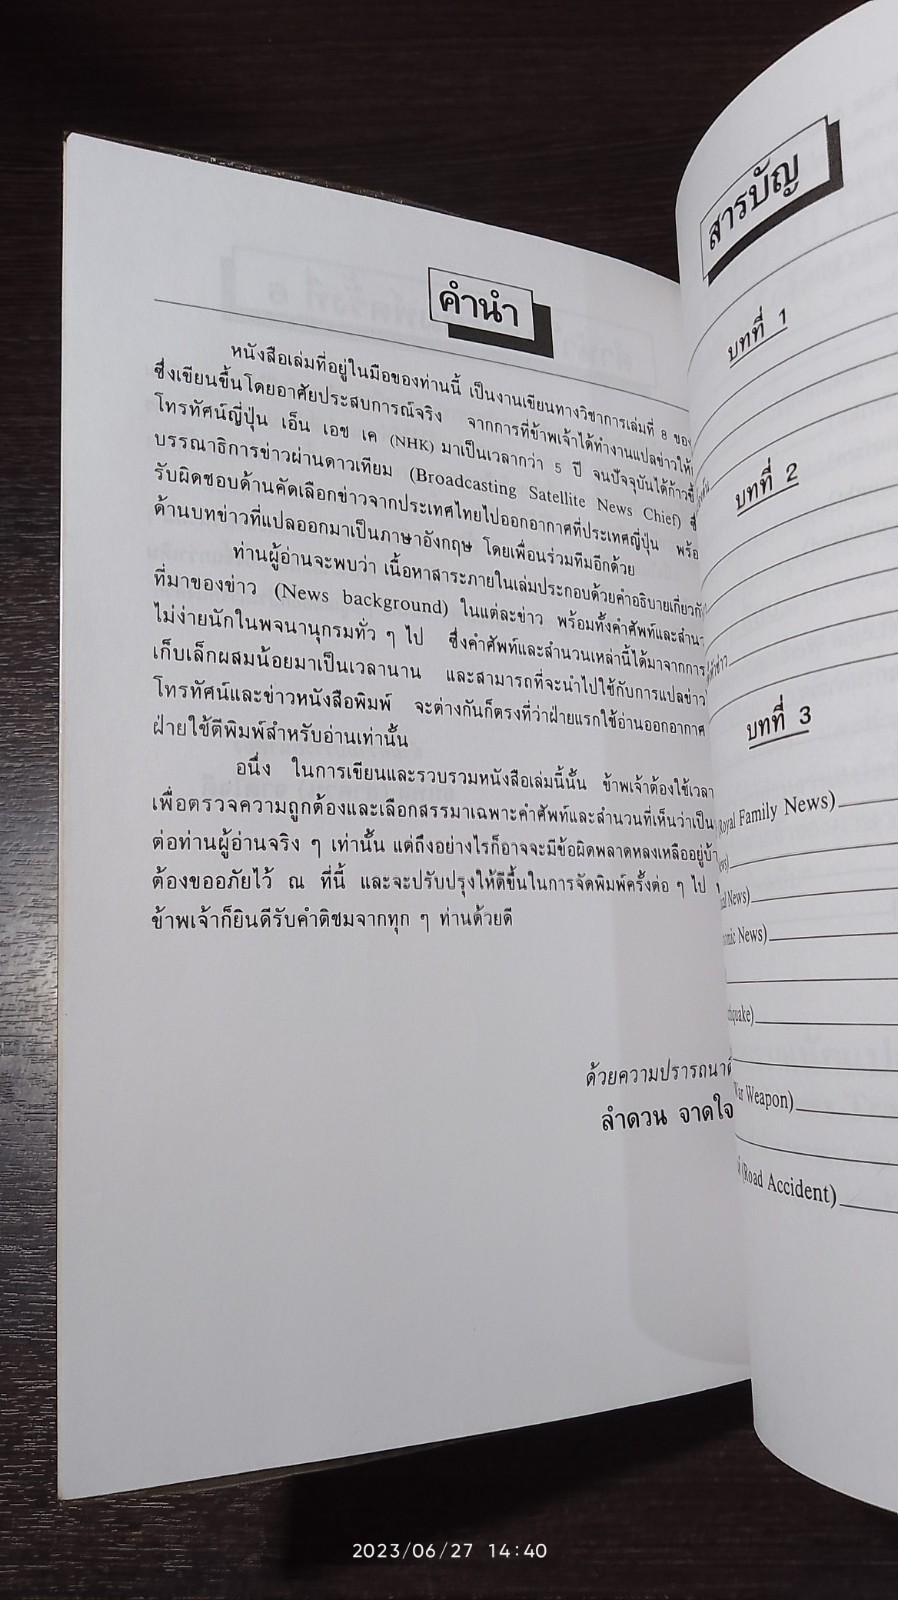 คำนำ
หนังสือเล่มที่อยู่ในมือของท่านนี้ เป็นงานเขียนทางวิชาการเล่มที่ 8 ของ
ซึ่งเขียนขึ้นโดยอาศัยประสบการณ์จริง จากการที่ข้าพเจ้าได้ทำงานแปลข่าวให้
โทรทัศน์ญี่ปุ่น เอ็น เอช เค (NHK) มาเป็นเวลากว่า 5 ปี จนปัจจุบันได้ก้าวขึ้
บรรณาธิการข่าวผ่านดาวเทียม (Broadcasting Satellite News Chief) ซึ่
รับผิดชอบด้านคัดเลือกข่าวจากประเทศไทยไปออกอากาศที่ประเทศญี่ปุ่น พร้อ
ด้านบทข่าวที่แปลออกมาเป็นภาษาอังกฤษ โดยเพื่อนร่วมทีมอีกด้วย
ท่านผู้อ่านจะพบว่า เนื้อหาสาระภายในเล่มประกอบด้วยคำอธิบายเกี่ยวกั
ที่มาของข่าว (News background) ในแต่ละข่าว พร้อมทั้งคำศัพท์และสำนว
ไม่ง่ายนักในพจนานุกรมทั่ว ๆ ไป ซึ่งคำศัพท์และสำนวนเหล่านี้ได้มาจากการ
เก็บเล็กผสมน้อยมาเป็นเวลานาน และสามารถที่จะนำไปใช้กับการแปลข่าว
โทรทัศน์และข่าวหนังสือพิมพ์ จะต่างกันก็ตรงที่ว่าฝ่ายแรกใช้อ่านออกอากาศ
ฝ่ายใช้ตีพิมพ์สำหรับอ่านเท่านั้น
อนึ่ง ในการเขียนและรวบรวมหนังสือเล่มนี้นั้น ข้าพเจ้าต้องใช้เวลา
เพื่อตรวจความถูกต้องและเลือกสรรมาเฉพาะคำศัพท์และสำนวนที่เห็นว่าเป็น
ต่อท่านผู้อ่านจริง ๆ เท่านั้น แต่ถึงอย่างไรก็อาจจะมีข้อผิดพลาดหลงเหลืออยู่บ้า
ต้องขออภัยไว้ ณ ที่นี้ และจะปรับปรุงให้ดีขึ้นในการจัดพิมพ์ครั้งต่อ ๆ ไป
ข้าพเจ้าก็ยินดีรับคำติชมจากทุก ๆ ท่านด้วยดี
ด้วยความปรารถนาดี
ลำดวน จาดใจ
สารบัญ
บทที่ 1
บทที่ 2
บทที่ 3
Royal Family News)
News)
News)
quake)
War Weapon)
(Road Accident)
2023/06/27 14:40